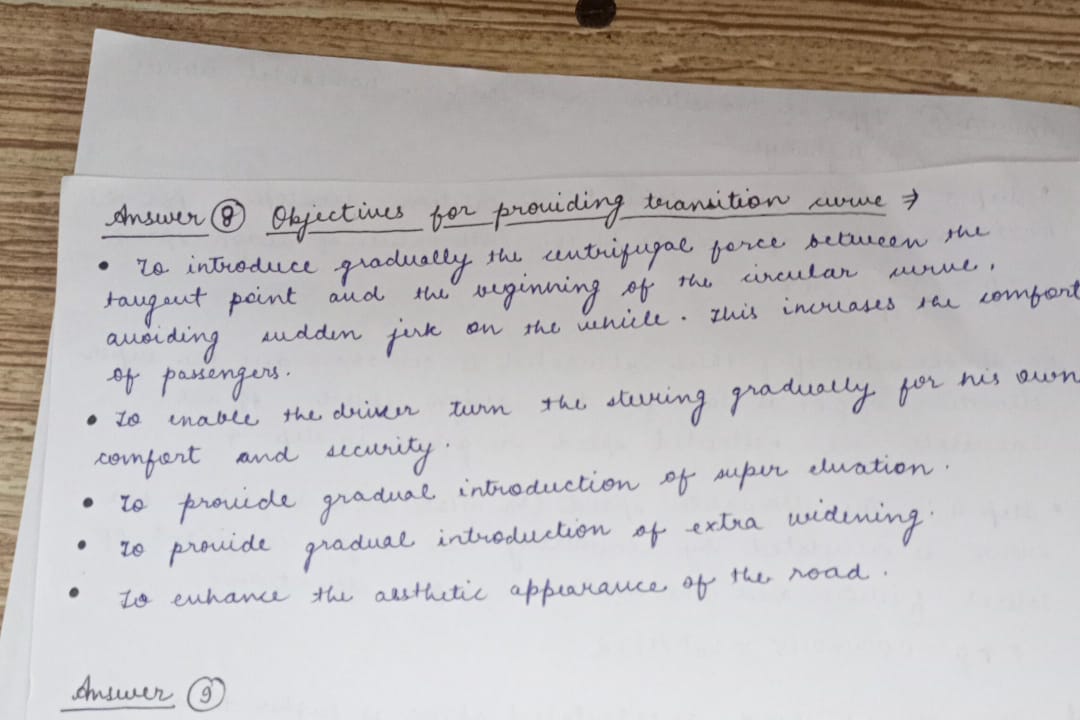 Answer (8) Objectives for providing transition curve ⇒
• To introduce gradually the centrifugal force between the
tangent point and the beginning of the circular curve,
avoiding sudden jerk on the vehicle. This increases the comfort
of passengers.
• To enable the driver turn the steering gradually for his own
comfort and security.
• To provide gradual introduction of super elevation.
• To provide gradual introduction of extra widening.
• To enhance the aesthetic appearance of the road.
Answer (9)